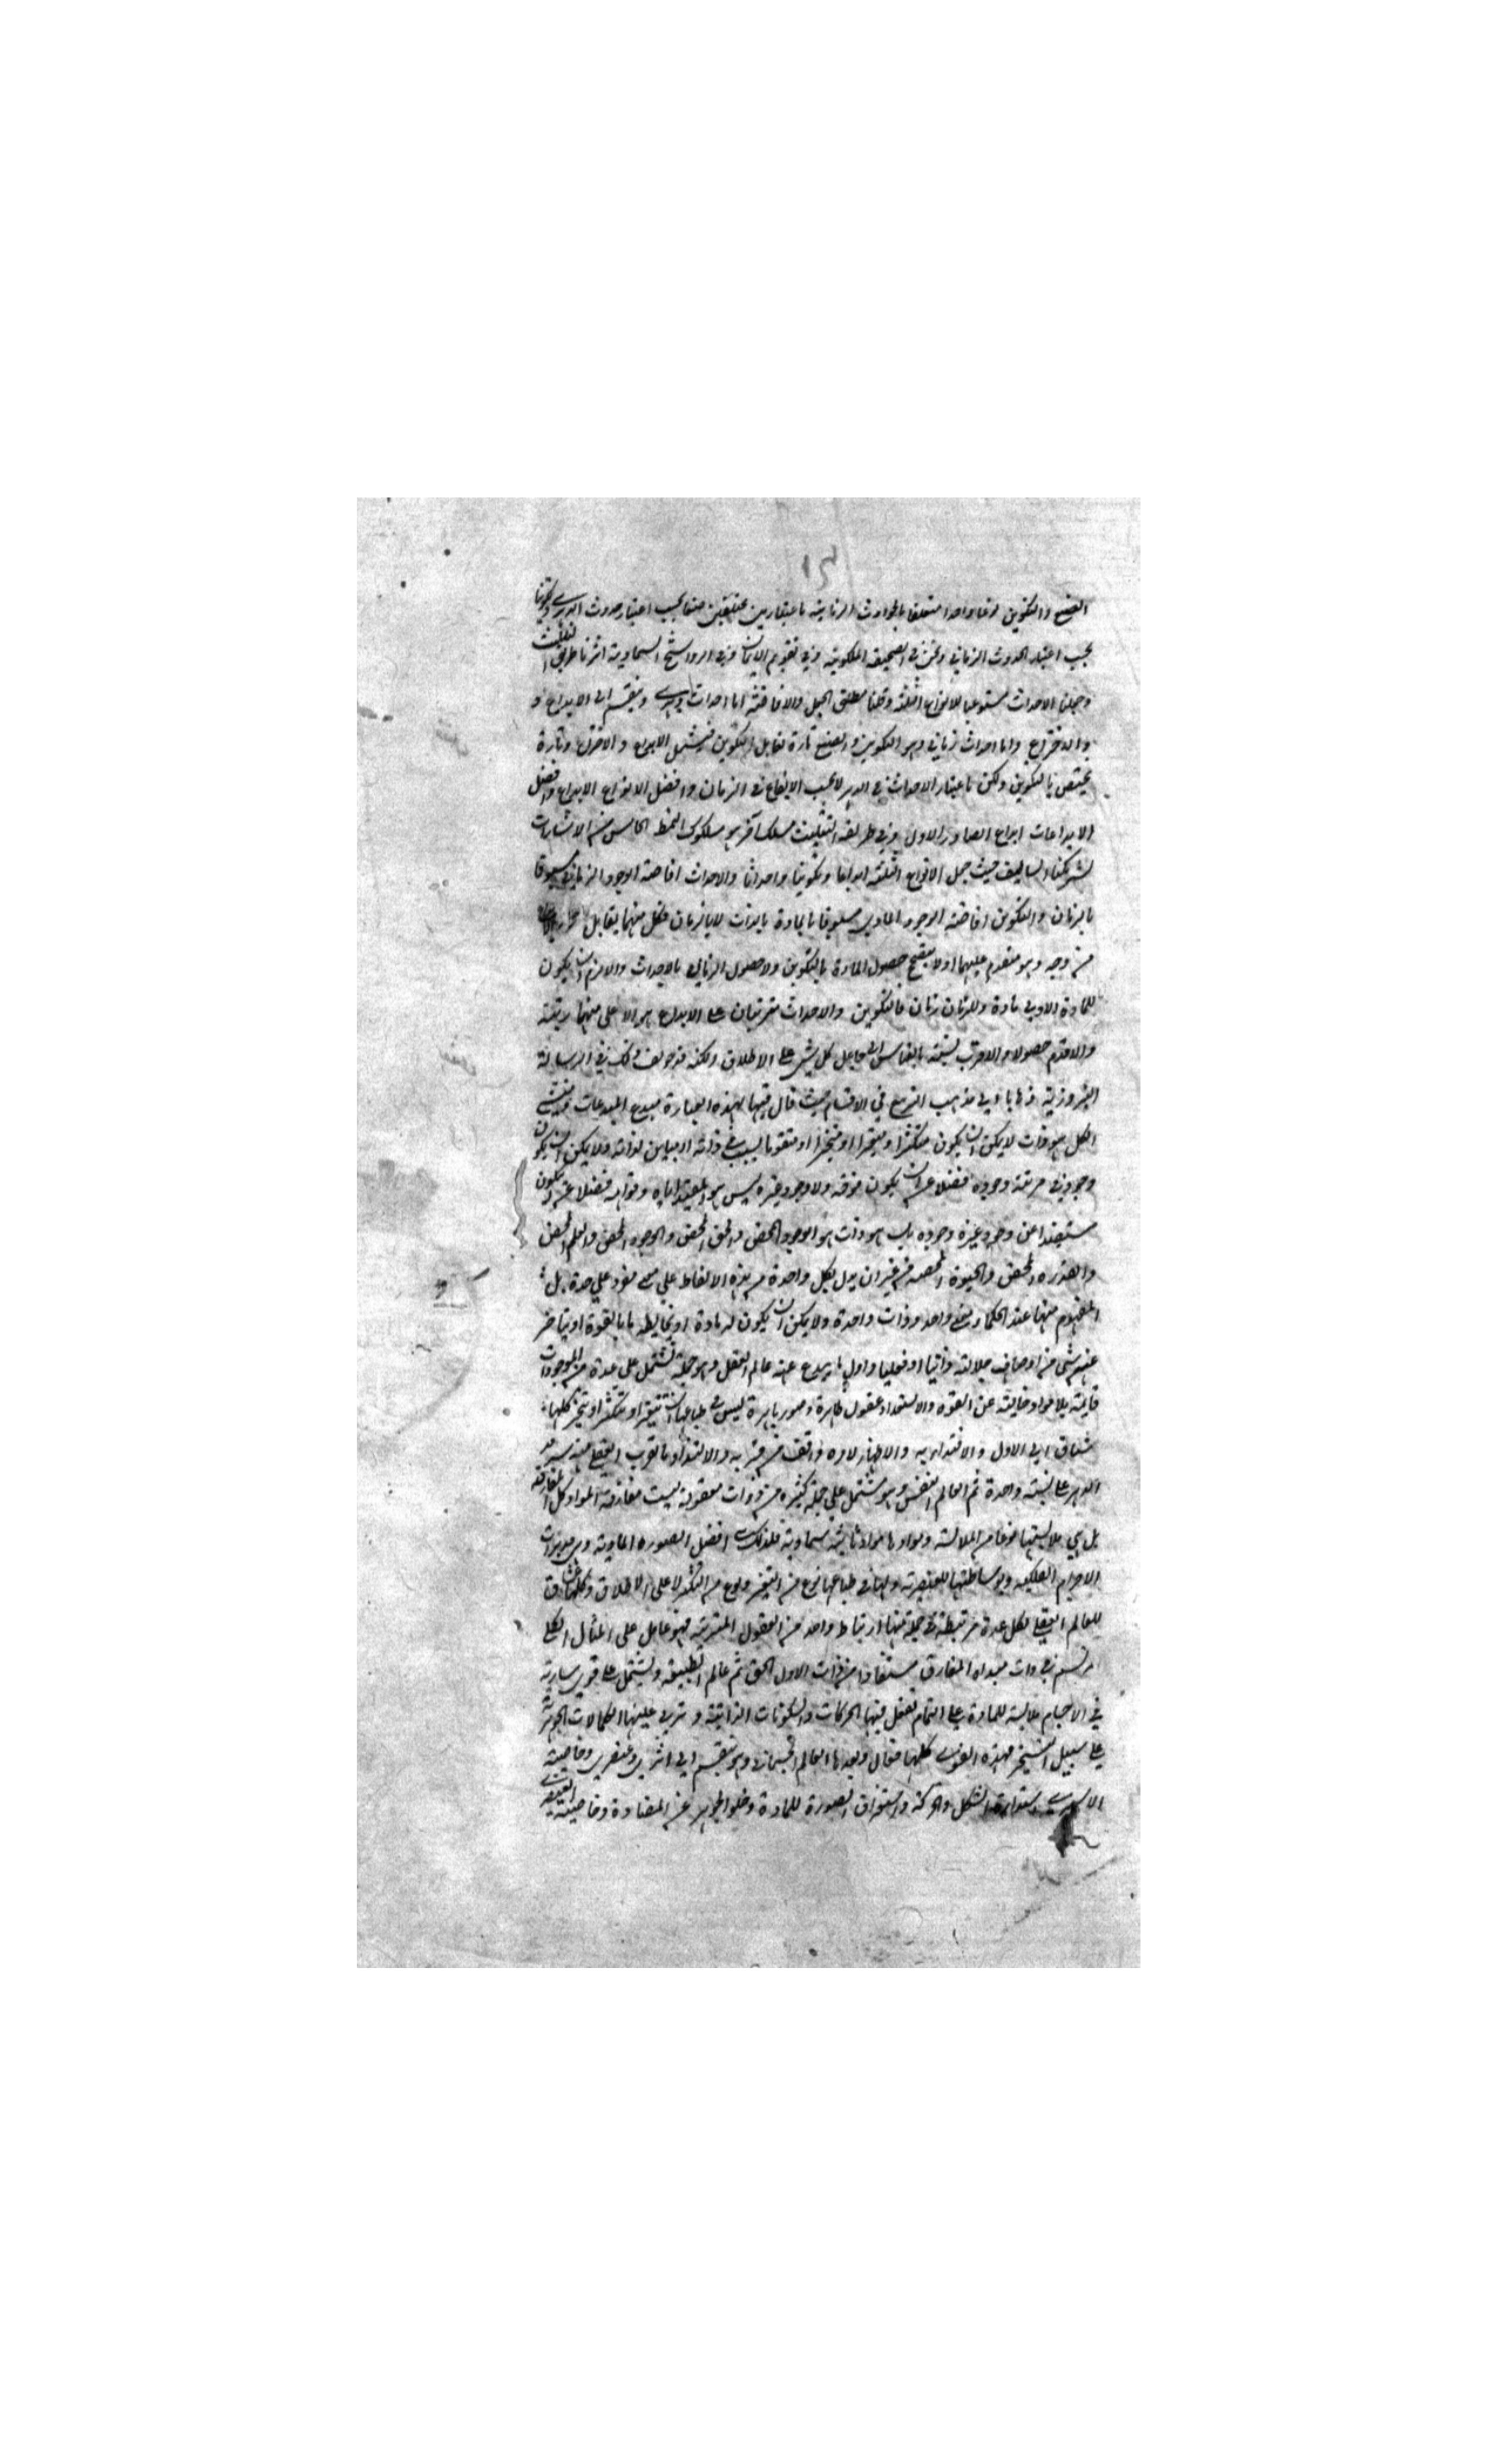 الصنع والتكوين نوعا واحدا متعلقا بالحوادث الزمانية باعتبارين مختلفين صنعا بحسب اعتبار حدوث الدهري وتكوينا
بحسب اعتبار الحدوث الزماني ونحن في الصحيفة الملكوتية وفي تقويم الايمان وفي الرواشح السماوية اثرنا طريق التثليث
وجعلنا الاحداث مستوعبا للانواع الثلثة وقلنا مطلق الجعل والافاضة اما احداث دهري وينقسم الى الابداع و
والاختراع واما احداث زماني وهو التكوين والصنع تارة يقابل التكوين فيشمل الابداع والاختراع وتارة
يختص بالتكوين ولكن باعتبار الاحداث في الدهر لا بحسب الايقاع في الزمان وافضل الانواع الابداع وافضل
الابداعات ابداع الصادر الاول وفي طريقة التثليث مسلك آخر هو مسلوك النمط الخامس من الاشارات
لشريكنا السالف حيث جعل الانواع الثلثة ابداعا وتكوينا واحداثا والاحداث افاضة الوجود الزماني مسبوقا
بالزمان والتكوين افاضة الوجود المادي مسبوقا بالمادة بالذات لا بالزمان فكل منهما يقابل
من وجه وهو متقدم عليهما اذ لا يصح حصول المادة بالتكوين ولا حصول الزمان بالاحداث والا لزم ان يكون
للمادة الاولى مادة وللزمان زمان فالتكوين والاحداث مترتبان على الابداع هو الاعلى منهما رتبة
والاقدم حصولا والاقرب نسبة بالقياس الى جاعل كل شيء على الاطلاق ولكنه قد خولف ذلك في الرسالة
النيروزية ذهابا الى مذهب التربيع في الاقسام حيث قال فيها بهذه العبارة مبدع المبدعات ومنشئ
الكل هو ذات لا يمكن ان يكون متكثرا او متغيرا او متحيزا او متقوما بسبب في ذاته او مباين لذاته ولا يمكن ان يكون
وجود في مرتبة وجوده فضلا عن ان يكون فوقه ولا وجود غيره ليس هو المفيد اياه وقوامه فضلا عن ان يكون
مستفيدا عن وجود غيره وجوده بل هو ذات هو الوجود المحض والحق المحض والجود المحض والعلم المحض
والقدرة المحض والحيوة المحضة من غير ان يدل بكل واحدة من هذه الالفاظ على معنى مفرد على حدة بل
المفهوم منها عند الحكماء معنى واحد وذات واحدة ولا يمكن ان يكون له مادة او يخالطه ما بالقوة او يتاخر
عنه شيء من اوصاف جلالته ذاتيا او فعليا واول ما يبدع عنه عالم العقل وهو جملة تشتمل على عدة من الموجودات
قائمة بلا مواد خالية عن القوة والاستعداد عقول طاهرة وصور باهرة ليس في طباعها ان تتغير او تتكثر او تتحيز كلها
تشتاق الى الاول والاقتداء به والاظهار لامره واقف من قربه والالتذاذ بالقرب العقلي منه سرمد
الدهر على نسبة واحدة ثم العالم النفسي وهو يشتمل على جملة كثيرة من ذوات معقولة ليست مفارقة المواد كل المفارقة
بل هي ملابستها نوعا من الملابسة وموادها مواد ثابتة سماوية فلذلك افضل الصورة المادية وهي مدبرات
الاجرام الفلكية وبوساطتها للعنصرية ولها في طباعها نوع من التغير ونوع من التكثر لا على الاطلاق وكلها عشاق
للعالم العقلي لكل عدة مرتبطة في جملة منها ارتباط واحد من العقول المقربة فهو عامل على المثال الكلي
المرتسم في ذات مبداه المفارق مستفاد من ذات الاول الحق ثم عالم الطبيعة ويشتمل على قوى سارية
في الاجسام ملابسة للمادة على التمام تفعل فيها الحركات والسكونات الذاتية وترقى عليها الكمالات الجوهرية
على سبيل التسخير فهذه القوى كلها فعال وبعدها العالم الجسماني وهو ينقسم الى اثيري وعنصري وخاصية
الاثيري استدارة الشكل والحركة واستغراق الصورة للمادة وخلو الجوهر عن المضادة وخاصية العنصري